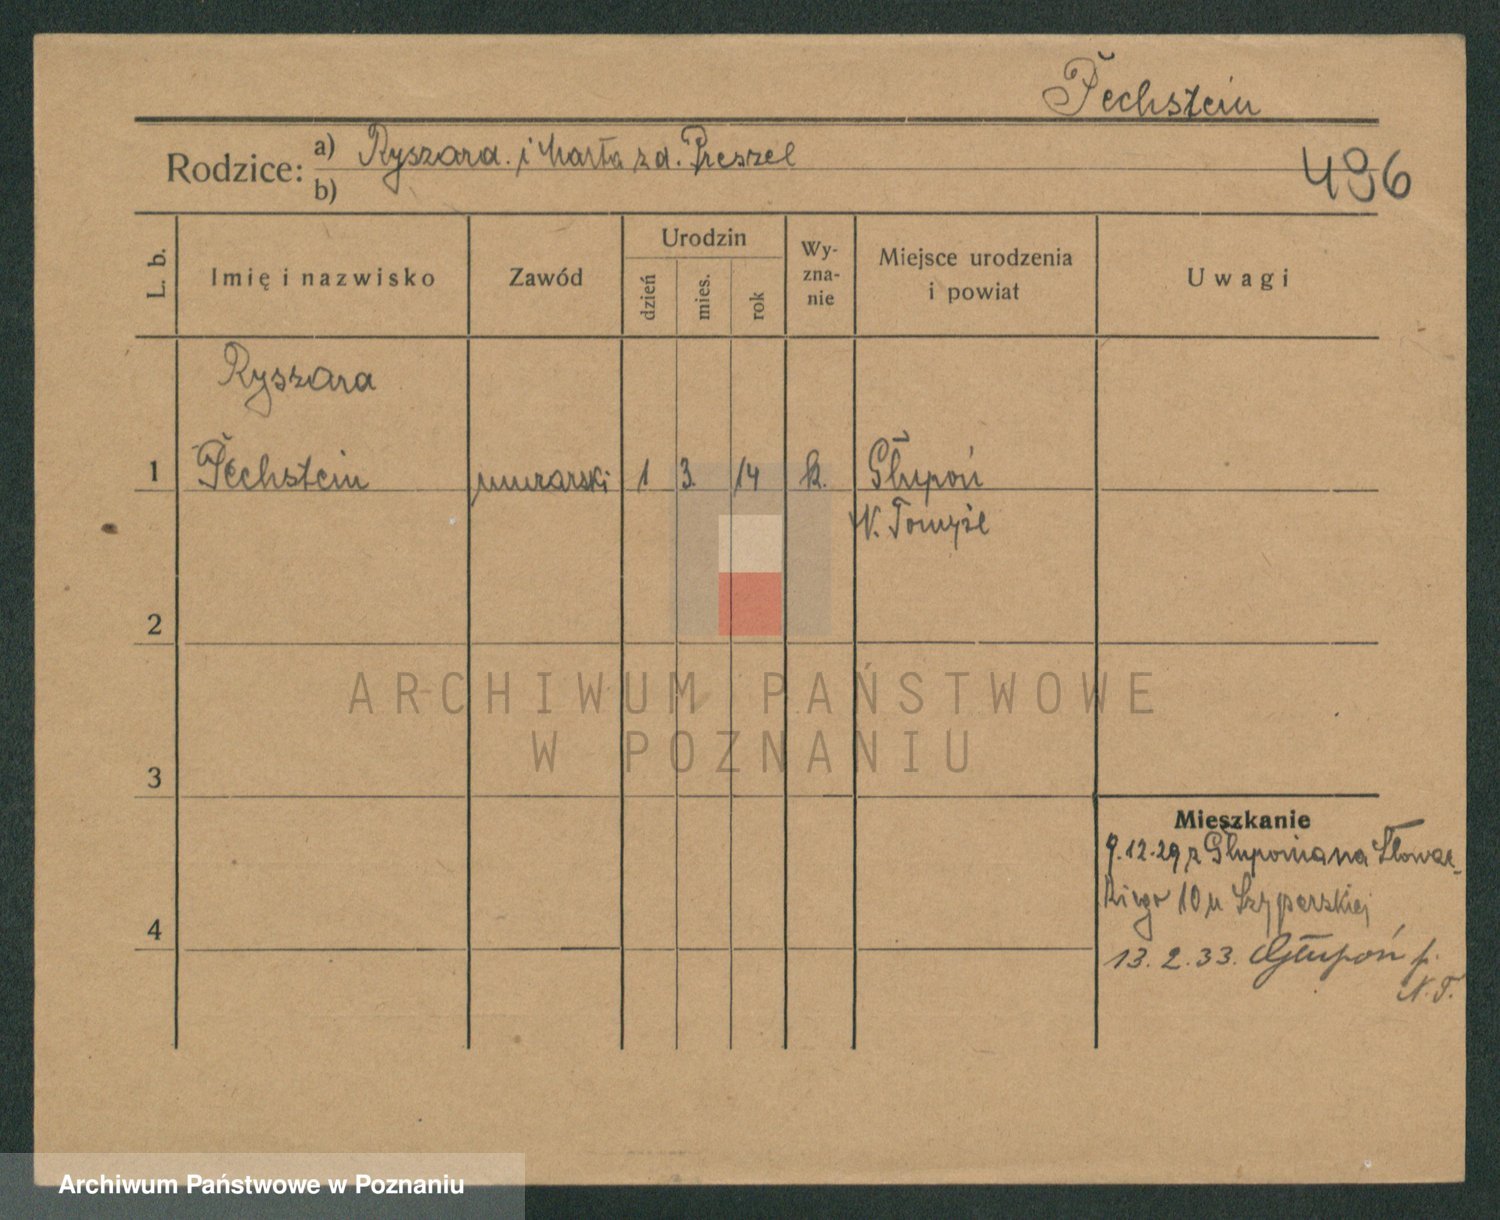 Pechstein
Rodzice: a) Ryszard. i Marta z d. Preszel
b)
496
L. b.
Imię i nazwisko
Zawód
Urodzin
dzień
mies.
rok
Wy-
zna-
nie
Miejsce urodzenia
i powiat
Uwagi
Ryszard
1 Pechstein murarski 1 3. 14 k. Głupoń
N. Tomyśl
2
ARCHIWUM PAŃSTWOWE
W POZNANIU
3
Mieszkanie
9.12.29 z Głuponia na Słowac-
kiego 10 u Szyperskiej
4
13.2.33. Głupoń p.
N.T.
Archiwum Państwowe w Poznaniu